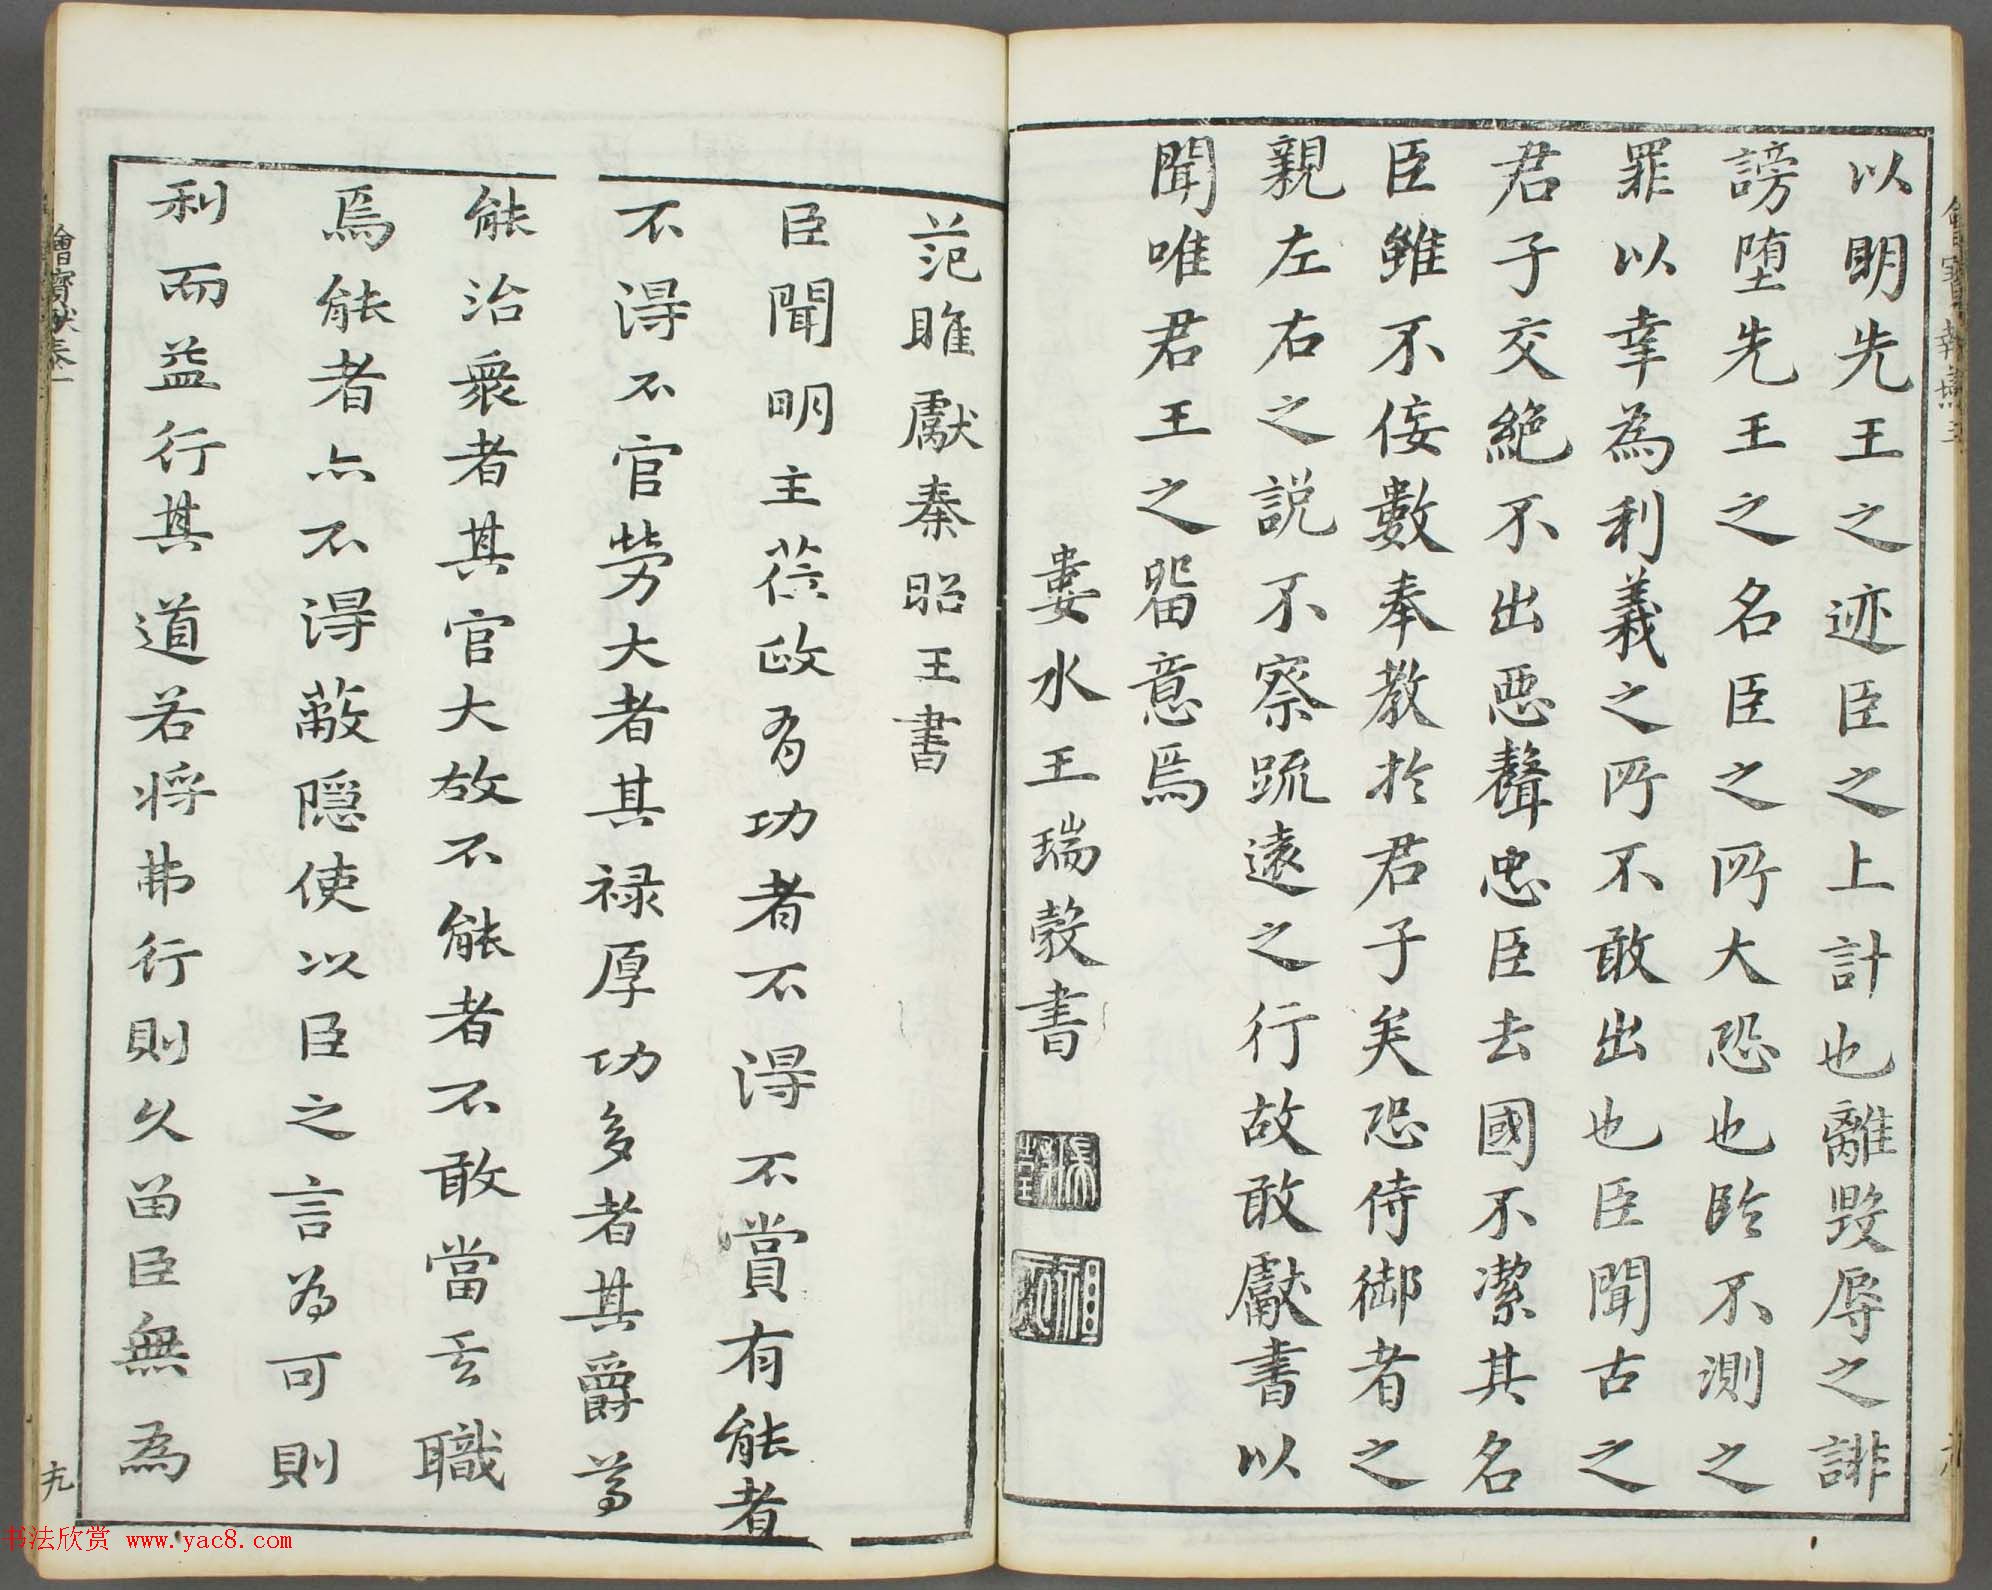 以明先王之迹臣之上計也離毀辱之誹
謗堕先王之名臣之所大恐也臨不測之
罪以幸為利義之所不敢出也臣聞古之
君子交絶不出惡聲忠臣去國不潔其名
臣雖不佞數奉教於君子矣恐侍御者之
親左右之説不察疏遠之行故敢獻書以
聞唯君王之畱意焉
婁水王瑞榖書
范雎獻秦昭王書
臣聞明主蒞政有功者不得不賞有能者
不得不官勞大者其禄厚功多者其爵尊
能治衆者其官大故不能者不敢當其職
焉能者亦不得蔽隠使以臣之言為可則
利而益行其道若将弗行則久畱臣無為
九
书法欣赏 www.yac8.com